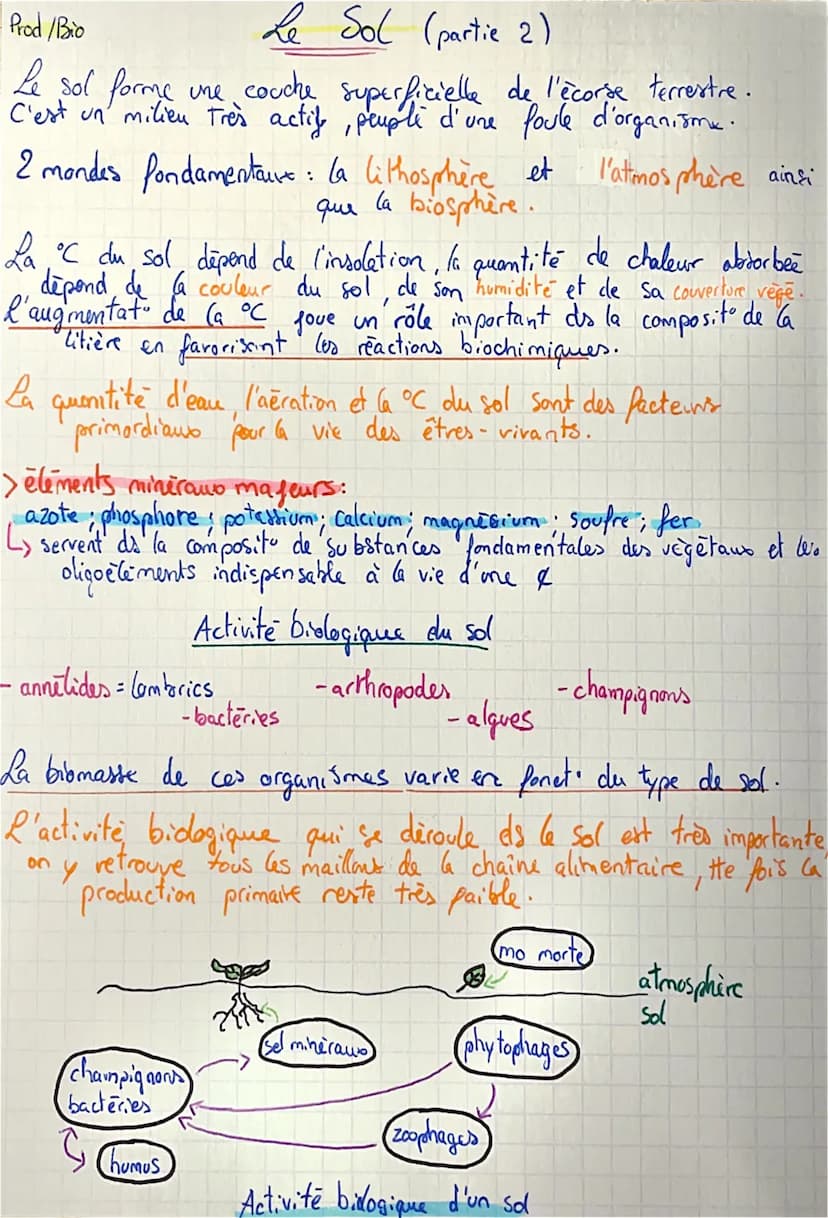 Prod/Bio
Le Sol (partie 2)
Le sol forme une couche superficielle de l'écorse terrestre.
C'est un milieu Très actif, peuplé d'une foule d'organisme.
2 mondes fondamentaux : la lithosphère et l'atmosphère ainsi
que la biosphère.
La °C du sol dépend de l'insolation, la quantité de chaleur absorbée
dépend de la couleur du sol, de son humidité et de sa couverture végé.
L'augmentat° de la °C joue un rôle important ds la composit° de la
litière en favorisant les réactions biochimiques.
La quantité d'eau, l'aération et la °C du sol sont des facteurs
primordiaux pour la vie des êtres-vivants.
> éléments minéraux majeurs :
azote ; phosphore ; potassium ; calcium ; magnésium ; soufre ; fer
↳ servent ds la composit° de substances fondamentales des végétaux et les
oligoéléments indispensable à la vie d'une ¢
Activité biologique du sol
- annélides = lombrics - arthropodes - champignons
- bactéries - algues
La biomasse de ces organismes varie en fonct° du type de sol.
L'activité biologique qui se déroule ds le sol est très importante,
on y retrouve tous les maillons de la chaîne alimentaire, tte fois la
production primaire reste très faible.
mo morte
atmosphère
sol
sel minéraux
phytophages
champignons
bactéries
zoophages
humus
Activité biologique d'un sol